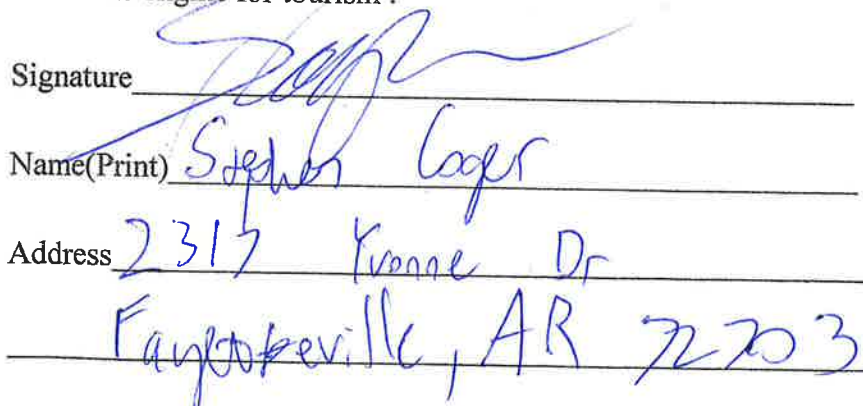 for tourism .
Signature
Name(Print) Stephen Coger
Address 2317 Yvonne Dr
Fayetteville, AR 72703